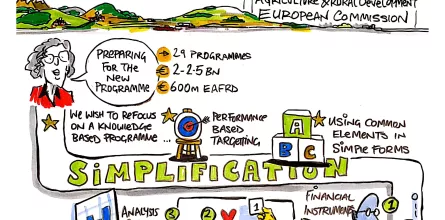 AGRICULTURE & RURAL DEVELOPMENT
EUROPEAN COMMISSION
PREPARING
FOR THE
NEW
PROGRAMME
29 PROGRAMMES
€ 2-2.5 BN
€ 600m EAFRD
WE WISH TO REFOCUS
ON A KNOWLEDGE
BASED PROGRAMME ...
PERFORMANCE
BASED
TARGETING
A
B C
USING COMMON
ELEMENTS IN
SIMPLE FORMS
SiMPLiFiCATiON
ANALYSIS
3
2
1
FINANCIAL
INSTRUMENTS